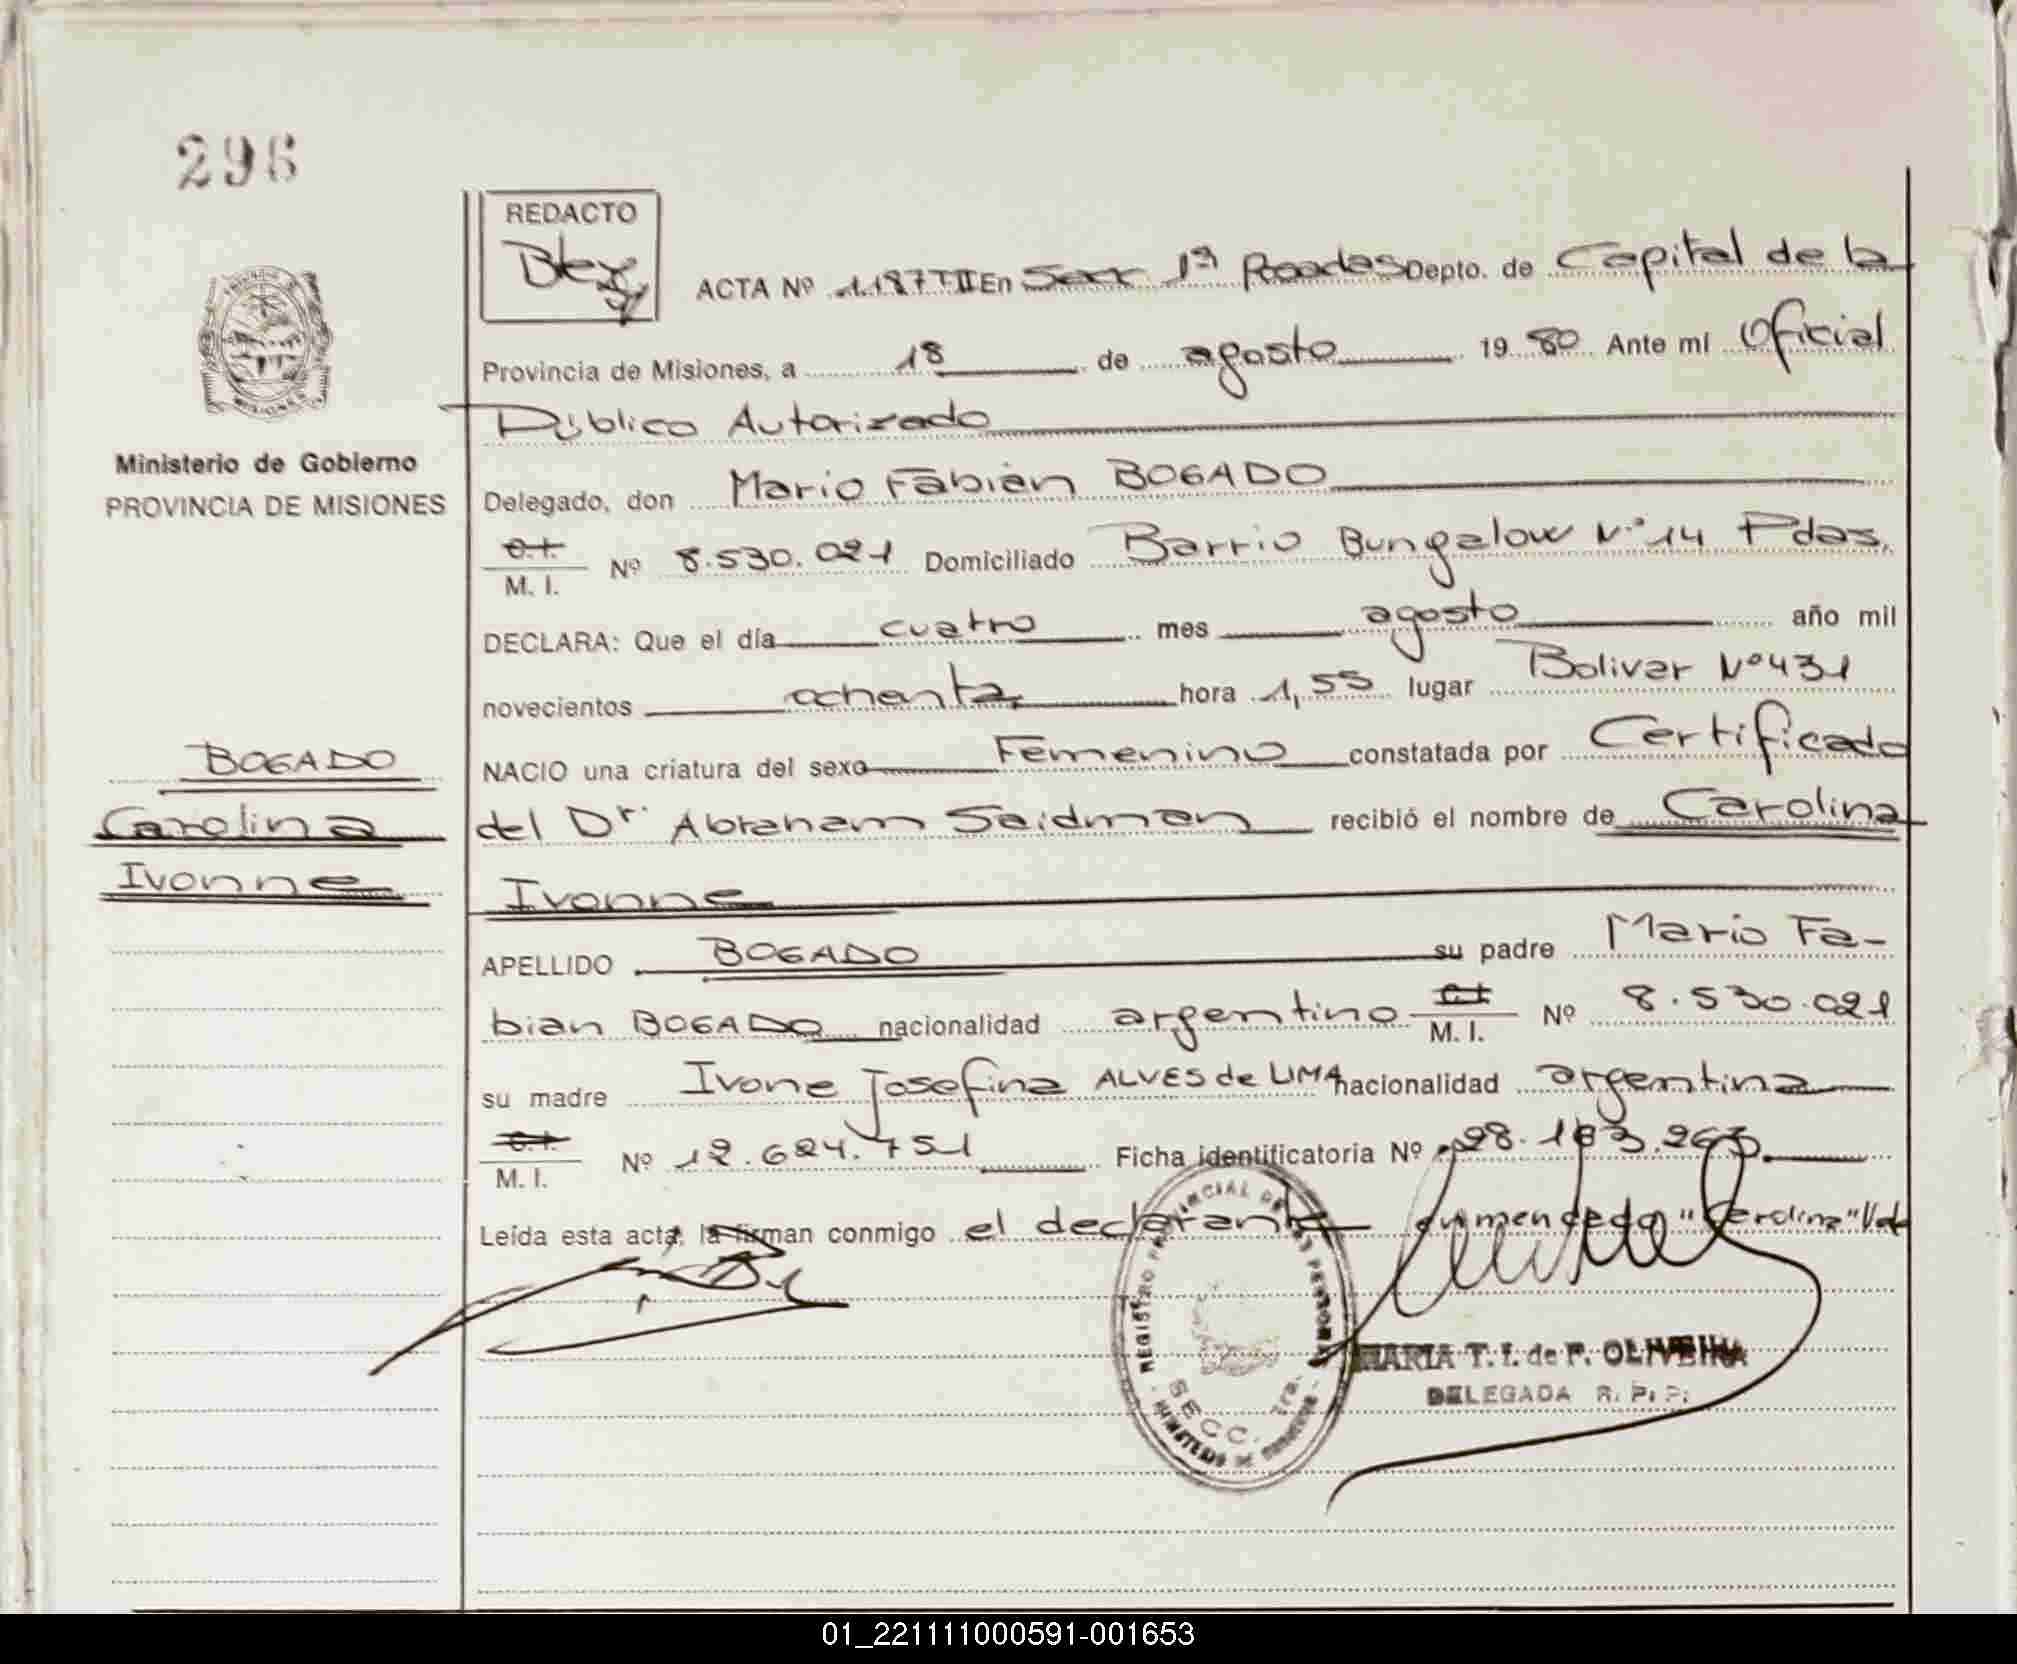 296
REDACTO
ACTA Nº 1.187 T II En Secc 1ª Posadas Depto. de Capital de la
Provincia de Misiones, a 18 de agosto 19 80 Ante mí Oficial
Público Autorizado
Ministerio de Gobierno
PROVINCIA DE MISIONES
Delegado, don Mario Fabián BOGADO
C.I.
M. I. Nº 8.530.021 Domiciliado Barrio Bungalow Nº 14 Pdas.
DECLARA: Que el día cuatro mes agosto año mil
novecientos ochenta hora 1,55 lugar Bolivar Nº 431
NACIO una criatura del sexo Femenino constatada por Certificado
del Dr. Abraham Saidman recibió el nombre de Carolina
Ivonne
BOGADO
Carolina
Ivonne
APELLIDO BOGADO su padre Mario Fa-
bian BOGADO nacionalidad argentino C.I. M. I. Nº 8.530.021
su madre Ivone Josefina ALVES de LIMA nacionalidad argentina
C.I.
M. I. Nº 12.624.751 Ficha identificatoria Nº 28.183.263
Leída esta acta, la firman conmigo el declarante enmendado "Carolina" Vale
REGISTRO PROVINCIAL DE LAS PERSONAS
SECC. 1ra.
MINISTERIO DE GOBIERNO
MARIA T. I. de F. OLIVEIRA
DELEGADA R. P. P.
01_221111000591-001653